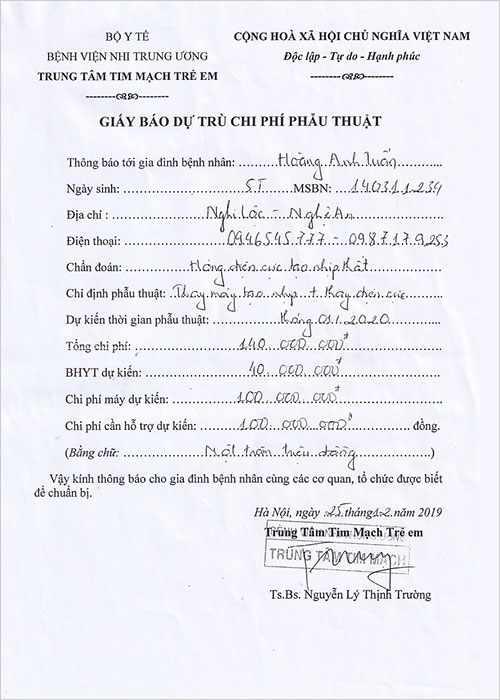 BỘ Y TẾ
BỆNH VIỆN NHI TRUNG ƯƠNG
TRUNG TÂM TIM MẠCH TRẺ EM
CỘNG HOÀ XÃ HỘI CHỦ NGHĨA VIỆT NAM
Độc lập - Tự do - Hạnh phúc
GIẤY BÁO DỰ TRÙ CHI PHÍ PHẪU THUẬT
Thông báo tới gia đình bệnh nhân: Hoàng Anh Tuấn
Ngày sinh: 5T MSBN: 14.031.1.234
Địa chỉ : Nghi Lộc - Nghệ An
Điện thoại: 0946545.777 - 0987.179.253
Chẩn đoán: Hỏng điện cực tạo nhịp thất
Chỉ định phẫu thuật: Thay máy tạo nhịp + thay điện cực
Dự kiến thời gian phẫu thuật: tháng 01.2020
Tổng chi phí: 140.000.000đ
BHYT dự kiến: 40.000.000đ
Chi phí máy dự kiến: 100.000.000đ
Chi phí cần hỗ trợ dự kiến: 100.000.000đ đồng.
(Bằng chữ: Một trăm triệu đồng)
Vậy kính thông báo cho gia đình bệnh nhân cùng các cơ quan, tổ chức được biết
để chuẩn bị.
Hà Nội, ngày 25 tháng 12 năm 2019
Trung Tâm Tim Mạch Trẻ em
TRUNG TÂM TIM MẠCH
Ts.Bs. Nguyễn Lý Thịnh Trường